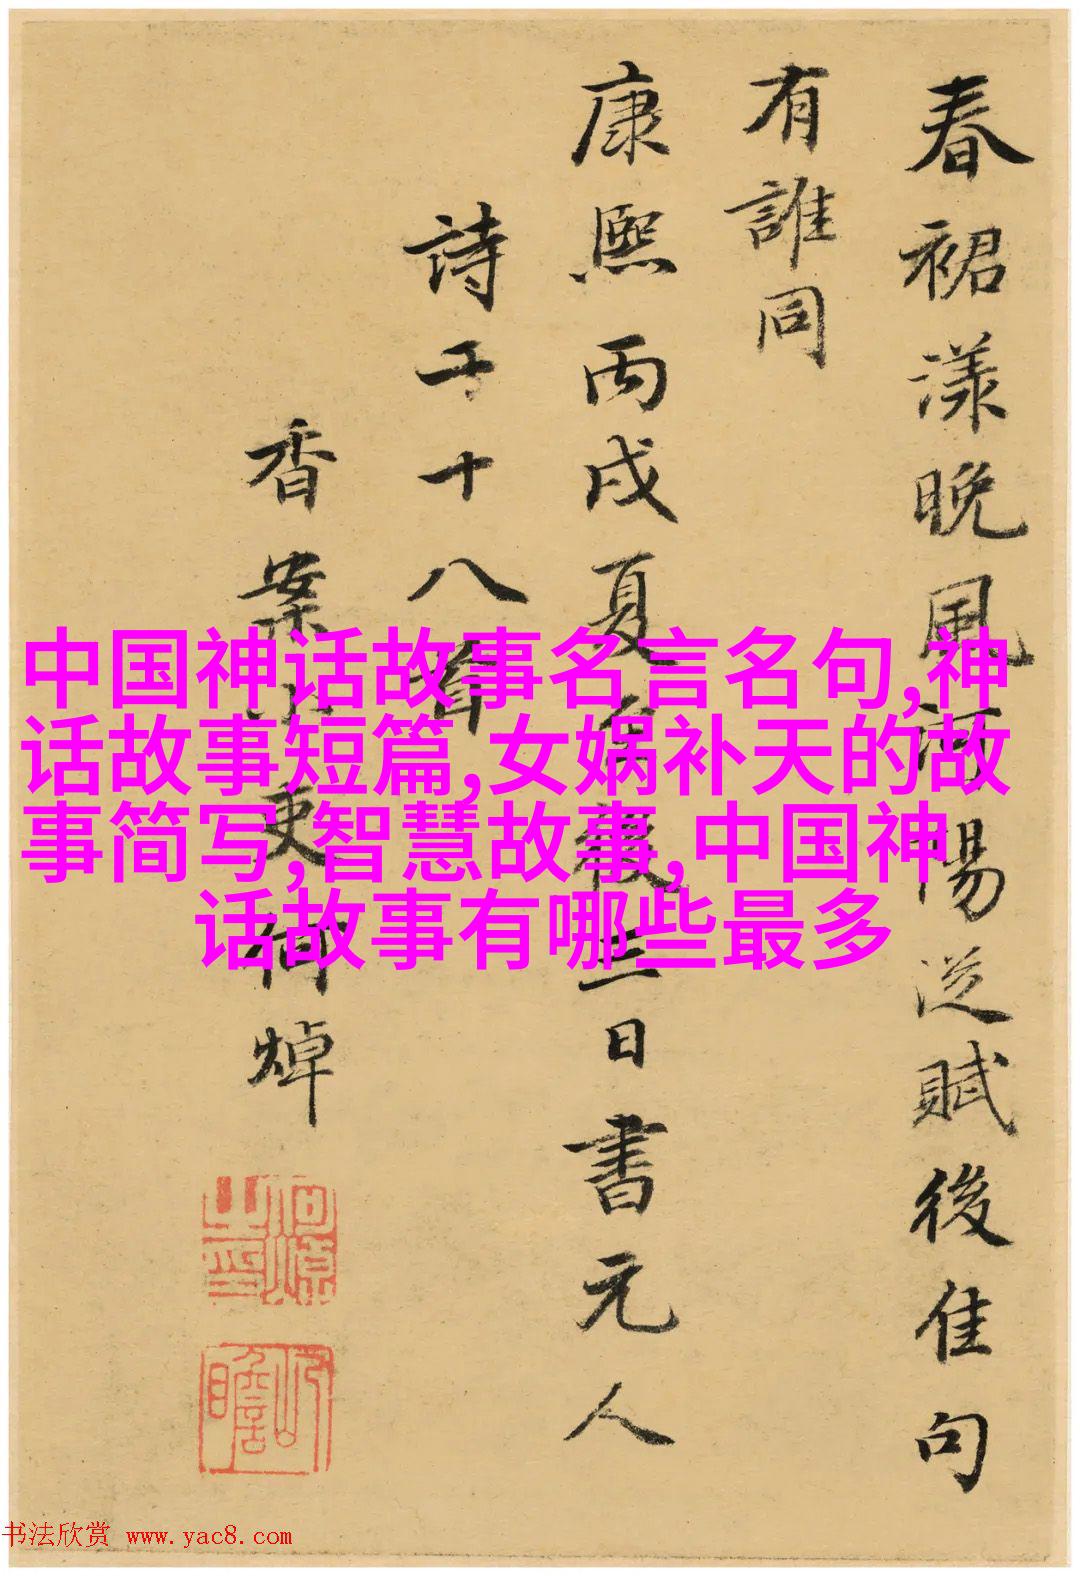 春裙漾晚風河陽從賦後佳句
有誰同
康熙丙戌夏至後三日書元人
詩于十八首
香案小吏何焯
何焯之印
屺瞻
中国神话故事名言名句,神
话故事短篇,女娲补天的故
事简写,智慧故事,中国神
话故事有哪些最多
书法欣赏 www.yac8.com